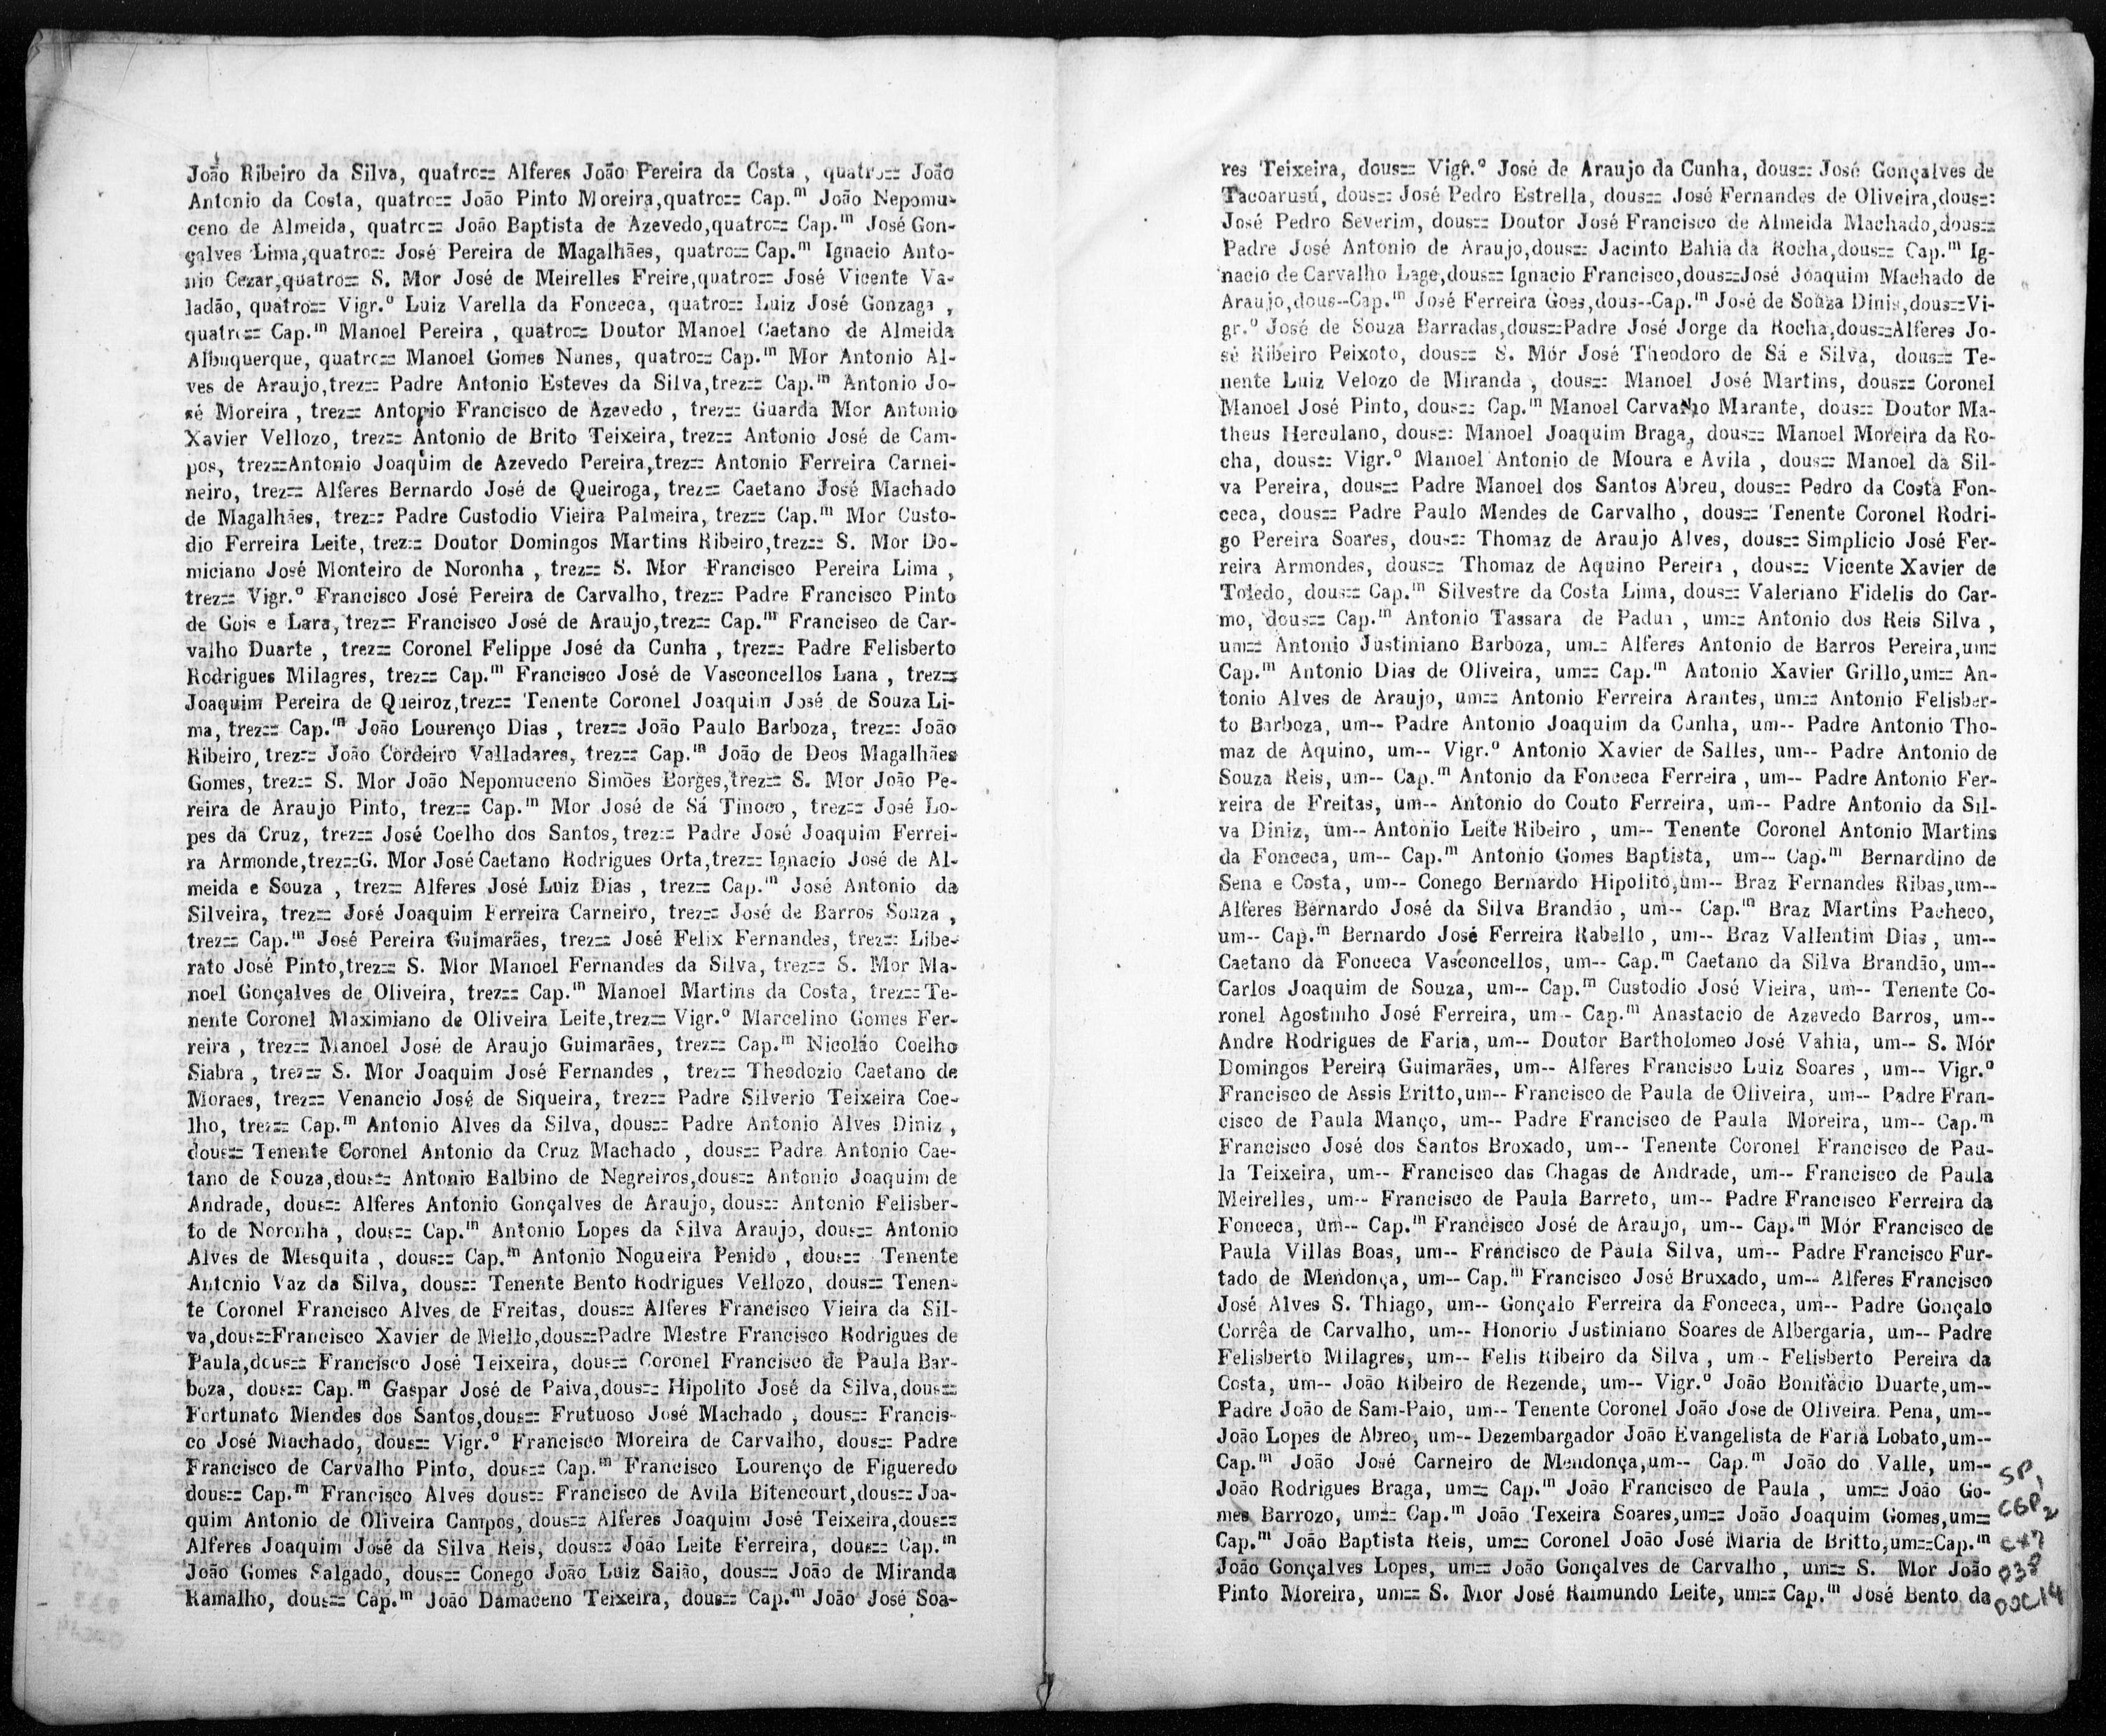 João Ribeiro da Silva, quatro== Alferes João Pereira da Costa , quatro== João
Antonio da Costa, quatro== João Pinto Moreira,quatro== Cap.m João Nepomu-
ceno de Almeida, quatro== João Baptista de Azevedo,quatro== Cap.m José Gon-
çalves Lima,quatro== José Pereira de Magalhães, quatro== Cap.m Ignacio Anto-
nio Cezar,quatro== S. Mor José de Meirelles Freire,quatro== José Vicente Va-
ladão, quatro== Vigr.o Luiz Varella da Fonceca, quatro== Luiz José Gonzaga ,
quatro== Cap.m Manoel Pereira , quatro== Doutor Manoel Caetano de Almeida
Albuquerque, quatro== Manoel Gomes Nunes, quatro== Cap.m Mor Antonio Al-
ves de Araujo,trez== Padre Antonio Esteves da Silva,trez== Cap.m Antonio Jo-
sé Moreira , trez== Antonio Francisco de Azevedo , trez== Guarda Mor Antonio
Xavier Vellozo, trez== Antonio de Brito Teixeira, trez== Antonio José de Cam-
pos, trez==Antonio Joaquim de Azevedo Pereira,trez== Antonio Ferreira Carnei-
neiro, trez== Alferes Bernardo José de Queiroga, trez== Caetano José Machado
de Magalhães, trez== Padre Custodio Vieira Palmeira, trez== Cap.m Mor Custo-
dio Ferreira Leite, trez== Doutor Domingos Martins Ribeiro,trez== S. Mor Do-
miciano José Monteiro de Noronha , trez== S. Mor Francisco Pereira Lima ,
trez== Vigr.o Francisco José Pereira de Carvalho, trez== Padre Francisco Pinto
de Gois e Lara, trez== Francisco José de Araujo,trez== Cap.m Franciseo de Car-
valho Duarte , trez== Coronel Felippe José da Cunha , trez== Padre Felisberto
Rodrigues Milagres, trez== Cap.m Francisco José de Vasconcellos Lana , trez==
Joaquim Pereira de Queiroz,trez== Tenente Coronel Joaquim José de Souza Li-
ma, trez== Cap.m João Lourenço Dias , trez== João Paulo Barboza, trez== João
Ribeiro, trez== João Cordeiro Valladares, trez== Cap.m João de Deos Magalhães
Gomes, trez== S. Mor João Nepomuceno Simões Borges,trez== S. Mor João Pe-
reira de Araujo Pinto, trez== Cap.m Mor José de Sá Tinoco , trez== José Lo-
pes da Cruz, trez== José Coelho dos Santos, trez== Padre José Joaquim Ferrei-
ra Armonde,trez==G. Mor José Caetano Rodrigues Orta,trez== Ignacio José de Al-
meida e Souza , trez== Alferes José Luiz Dias , trez== Cap.m José Antonio da
Silveira, trez== José Joaquim Ferreira Carneiro, trez== José de Barros Souza ,
trez== Cap.m José Pereira Guimarães, trez== José Felix Fernandes, trez== Libe-
rato José Pinto,trez== S. Mor Manoel Fernandes da Silva, trez== S. Mor Ma-
noel Gonçalves de Oliveira, trez== Cap.m Manoel Martins da Costa, trez== Te-
nente Coronel Maximiano de Oliveira Leite,trez== Vigr.o Marcelino Gomes Fer-
reira , trez== Manoel José de Araujo Guimarães, trez== Cap.m Nicoláo Coelho
Siabra , trez== S. Mor Joaquim José Fernandes , trez== Theodozio Caetano de
Moraes, trez== Venancio José de Siqueira, trez== Padre Silverio Teixeira Coe-
lho, trez== Cap.m Antonio Alves da Silva, dous== Padre Antonio Alves Diniz ,
dous== Tenente Coronel Antonio da Cruz Machado , dous== Padre Antonio Cae-
tano de Souza,dous== Antonio Balbino de Negreiros,dous== Antonio Joaquim de
Andrade, dous== Alferes Antonio Gonçalves de Araujo, dous== Antonio Felisber-
to de Noronha , dous== Cap.m Antonio Lopes da Silva Araujo, dous== Antonio
Alves de Mesquita , dous== Cap.m Antonio Nogueira Penido , dous== Tenente
Antonio Vaz da Silva, dous== Tenente Bento Rodrigues Vellozo, dous== Tenen-
te Coronel Francisco Alves de Freitas, dous== Alferes Francisco Vieira da Sil-
va,dous==Francisco Xavier de Mello,dous==Padre Mestre Francisco Rodrigues de
Paula,dous== Francisco José Teixeira, dous== Coronel Francisco de Paula Bar-
boza, dous== Cap.m Gaspar José de Paiva,dous== Hipolito José da Silva,dous==
Fortunato Mendes dos Santos,dous== Frutuoso José Machado , dous== Francis-
co José Machado, dous== Vigr.o Francisco Moreira de Carvalho, dous== Padre
Francisco de Carvalho Pinto, dous== Cap.m Francisco Lourenço de Figueredo
dous== Cap.m Francisco Alves dous== Francisco de Avila Bitencourt,dous== Joa-
quim Antonio de Oliveira Campos, dous== Alferes Joaquim José Teixeira,dous==
Alferes Joaquim José da Silva Reis, dous== João Leite Ferreira, dous== Cap.m
João Gomes Salgado, dous== Conego João Luiz Saião, dous== João de Miranda
Ramalho, dous== Cap.m João Damaceno Teixeira, dous== Cap.m João José Soa-
res Teixeira, dous== Vigr.o José de Araujo da Cunha, dous== José Gonçalves de
Tacoarusú, dous== José Pedro Estrella, dous== José Fernandes de Oliveira,dous==
José Pedro Severim, dous== Doutor José Francisco de Almeida Machado,dous==
Padre José Antonio de Araujo,dous== Jacinto Bahia da Rocha,dous== Cap.m Ig-
nacio de Carvalho Lage,dous== Ignacio Francisco,dous==José Joaquim Machado de
Araujo,dous--Cap.m José Ferreira Goes,dous--Cap.m José de Souza Dinis,dous==Vi-
gr.o José de Souza Barradas,dous==Padre José Jorge da Rocha,dous==Alferes Jo-
sé Ribeiro Peixoto, dous== S. Mór José Theodoro de Sá e Silva, dous== Te-
nente Luiz Velozo de Miranda , dous== Manoel José Martins, dous== Coronel
Manoel José Pinto, dous== Cap.m Manoel Carvalho Marante, dous== Doutor Ma-
theus Herculano, dous== Manoel Joaquim Braga, dous== Manoel Moreira da Ro-
cha, dous== Vigr.o Manoel Antonio de Moura e Avila , dous== Manoel da Sil-
va Pereira, dous== Padre Manoel dos Santos Abreu, dous== Pedro da Costa Fon-
ceca, dous== Padre Paulo Mendes de Carvalho , dous== Tenente Coronel Rodri-
go Pereira Soares, dous== Thomaz de Araujo Alves, dous== Simplicio José Fer-
reira Armondes, dous== Thomaz de Aquino Pereira , dous== Vicente Xavier de
Toledo, dous== Cap.m Silvestre da Costa Lima, dous== Valeriano Fidelis do Car-
mo, dous== Cap.m Antonio Tassara de Padua , um== Antonio dos Reis Silva ,
um== Antonio Justiniano Barboza, um== Alferes Antonio de Barros Pereira,um=
Cap.m Antonio Dias de Oliveira, um== Cap.m Antonio Xavier Grillo,um== An-
tonio Alves de Araujo, um== Antonio Ferreira Arantes, um== Antonio Felisber-
to Barboza, um-- Padre Antonio Joaquim da Cunha, um-- Padre Antonio Tho-
maz de Aquino, um-- Vigr.o Antonio Xavier de Salles, um-- Padre Antonio de
Souza Reis, um-- Cap.m Antonio da Fonceca Ferreira , um-- Padre Antonio Fer-
reira de Freitas, um-- Antonio do Couto Ferreira, um-- Padre Antonio da Sil-
va Diniz, um-- Antonio Leite Ribeiro , um-- Tenente Coronel Antonio Martins
da Fonceca, um-- Cap.m Antonio Gomes Baptista, um-- Cap.m Bernardino de
Sena e Costa, um-- Conego Bernardo Hipolito,um-- Braz Fernandes Ribas,um--
Alferes Bernardo José da Silva Brandão , um-- Cap.m Braz Martins Pacheco,
um-- Cap.m Bernardo José Ferreira Rabello , um-- Braz Vallentim Dias , um--
Caetano da Fonceca Vasconcellos, um-- Cap.m Caetano da Silva Brandão, um--
Carlos Joaquim de Souza, um-- Cap.m Custodio José Vieira, um-- Tenente Co-
ronel Agostinho José Ferreira, um-- Cap.m Anastacio de Azevedo Barros, um--
Andre Rodrigues de Faria, um-- Doutor Bartholomeo José Vahia, um-- S. Mór
Domingos Pereira Guimarães, um-- Alferes Francisco Luiz Soares , um-- Vigr.o
Francisco de Assis Britto,um-- Francisco de Paula de Oliveira, um-- Padre Fran-
cisco de Paula Manço, um-- Padre Francisco de Paula Moreira, um-- Cap.m
Francisco José dos Santos Broxado, um-- Tenente Coronel Francisco de Pau-
la Teixeira, um-- Francisco das Chagas de Andrade, um-- Francisco de Paula
Meirelles, um-- Francisco de Paula Barreto, um-- Padre Francisco Ferreira da
Fonceca, um-- Cap.m Francisco José de Araujo, um-- Cap.m Mór Francisco de
Paula Villas Boas, um-- Francisco de Paula Silva, um-- Padre Francisco Fur-
tado de Mendonça, um-- Cap.m Francisco José Bruxado, um-- Alferes Francisco
José Alves S. Thiago, um-- Gonçalo Ferreira da Fonceca, um-- Padre Gonçalo
Corrêa de Carvalho, um-- Honorio Justiniano Soares de Albergaria, um-- Padre
Felisberto Milagres, um-- Felis Ribeiro da Silva , um-- Felisberto Pereira da
Costa, um-- João Ribeiro de Rezende, um-- Vigr.o João Bonifacio Duarte,um--
Padre João de Sam-Paio, um-- Tenente Coronel João Jose de Oliveira. Pena, um--
João Lopes de Abreo, um-- Dezembargador João Evangelista de Faria Lobato,um--
Cap.m João José Carneiro de Mendonça,um-- Cap.m João do Valle, um--
João Rodrigues Braga, um== Cap.m João Francisco de Paula , um== João Go-
mes Barrozo, um== Cap.m João Texeira Soares,um== João Joaquim Gomes,um==
Cap.m João Baptista Reis, um== Coronel João José Maria de Britto,um==Cap.m
João Gonçalves Lopes, um== João Gonçalves de Carvalho , um== S. Mor João
Pinto Moreira, um== S. Mor José Raimundo Leite, um== Cap.m José Bento da
SP,
CGP2
CX7
D38
DOC14